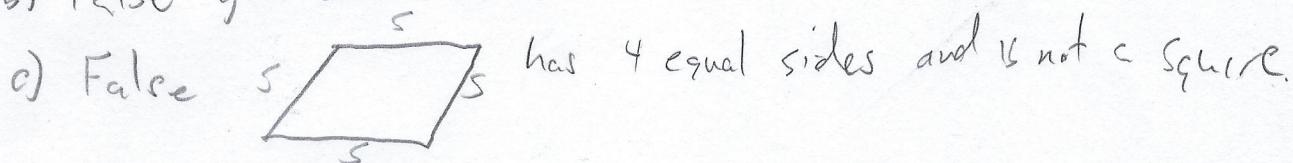 c) False s s s s has 4 equal sides and is not a square.